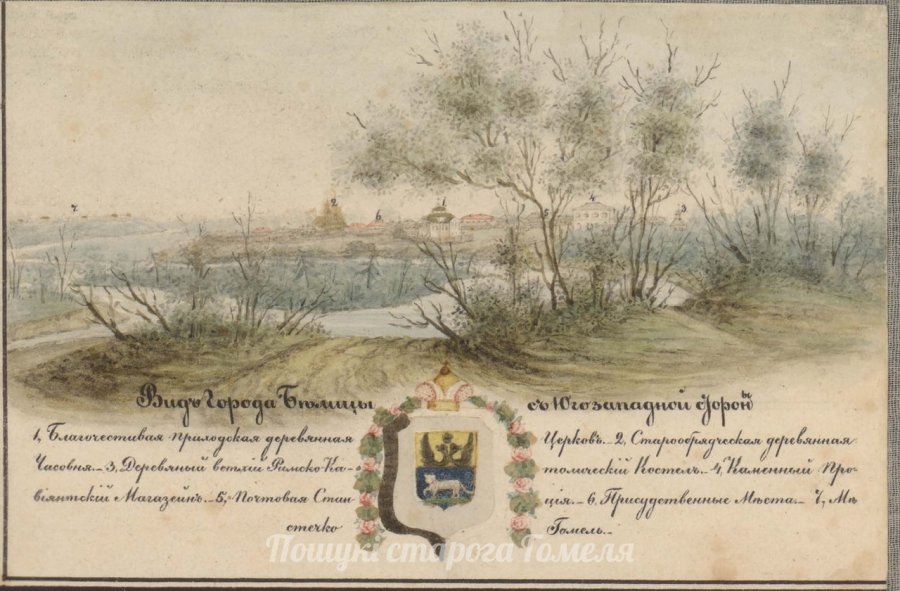 7
2
6
1
5
4
3
Видъ Города Бѣлицы съ Югозападной стороны
1, Благочестивая приходская деревянная Церковь. 2, Старообрядческая деревянная
Часовня. 3, Деревяный ветхій Римско-Ка- толическій Костелъ. 4, Каменный Про-
віянтскій Магазейнъ. 5, Почтовая Стан- ція. 6, Присудственные Мѣста. 7, Мѣ
стечко Гомель.
Пошукі старога Гомеля